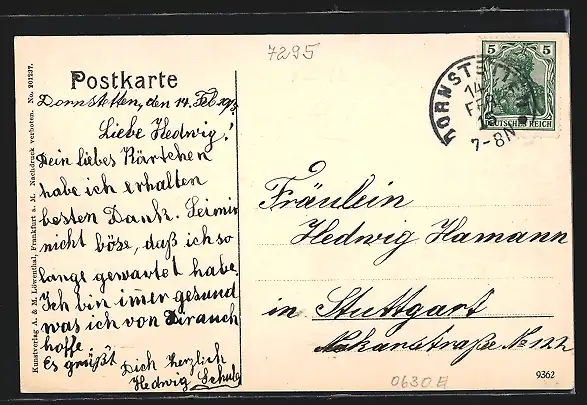 7295
Postkarte
Dornstetten, den 14. Feb.
Liebe Hedwig!
Dein liebes Kärtchen
habe ich erhalten
besten Dank. Sei mir
nicht böse, daß ich so
lange gewartet habe.
Ich bin immer gesund
was ich von Dir auch
hoffe.
Es grüßt Dich herzlich
Hedwig Schula
Fräulein
Hedwig Hamann
in Stuttgart
Nekarstraße No 122
DORNSTETTEN
14
FEB
7-8N
5 5
DEUTSCHES REICH
Kunstverlag A. & M. Löwenthal, Frankfurt a. M. Nachdruck verboten. No. 201237.
9362
0630 E